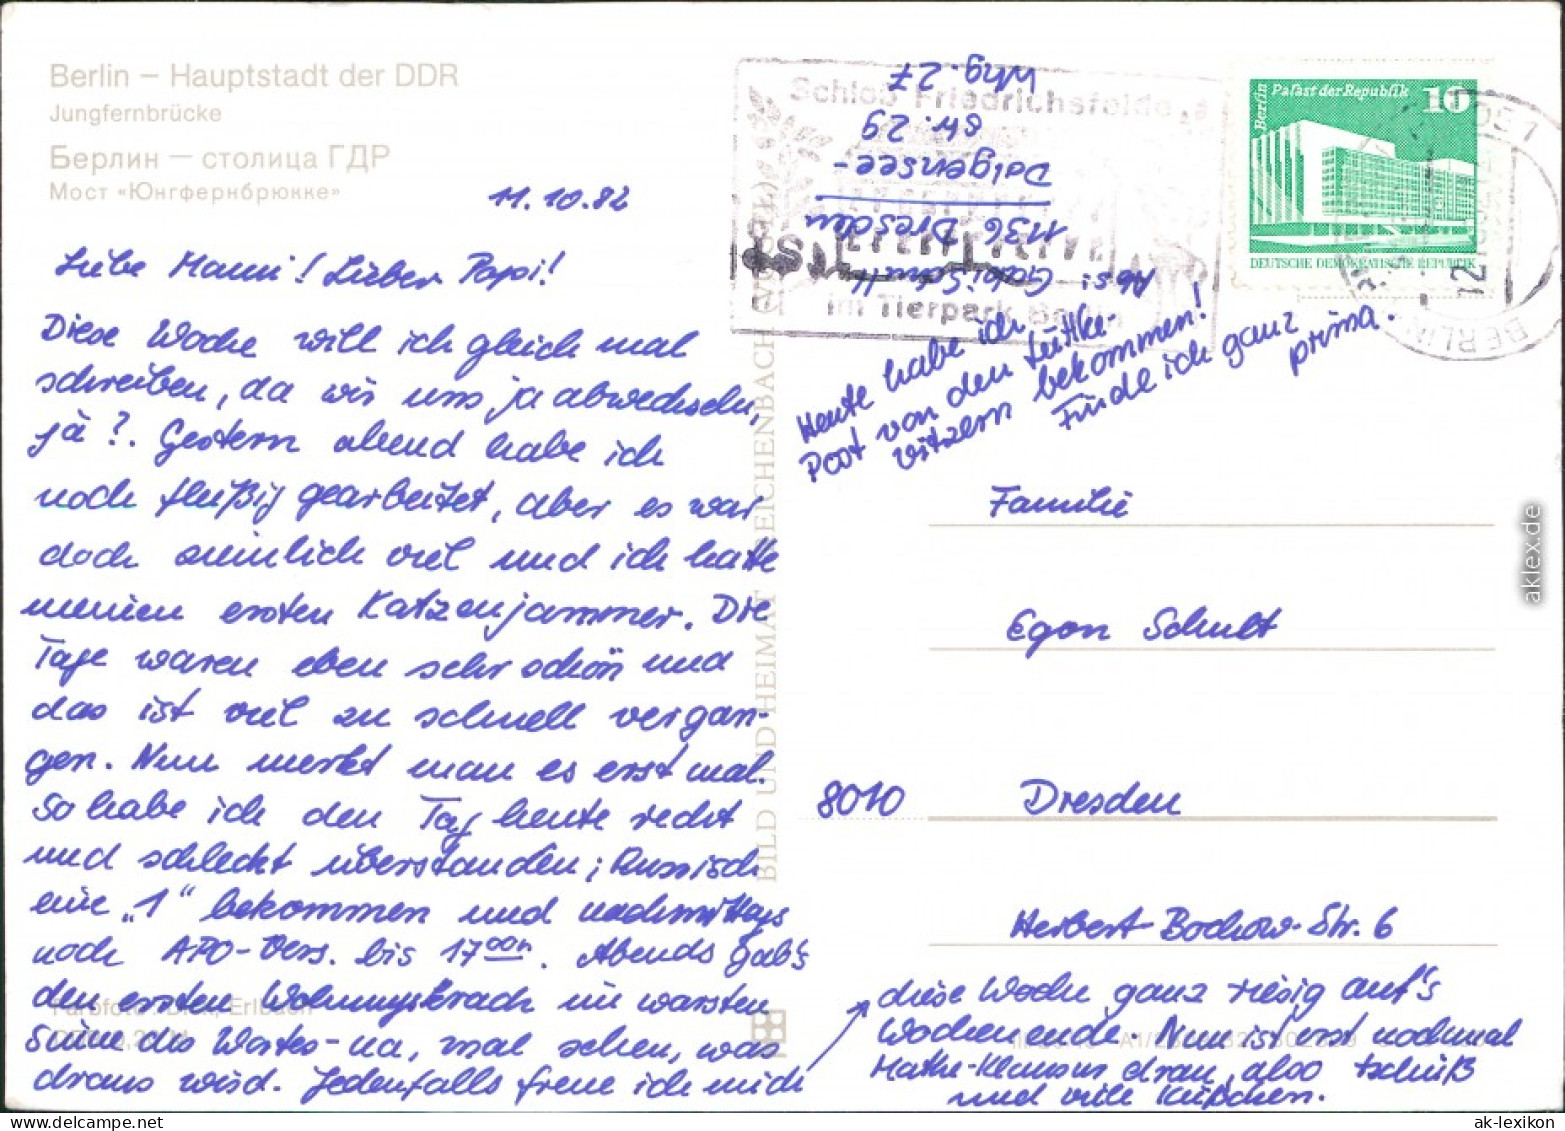 Berlin – Hauptstadt der DDR
Jungfernbrücke
Берлин – столица ГДР
Мост «Юнгфернбрюнке»
11.10.82
Liebe Mami! Lieber Papi!
Diese Woche will ich gleich mal
schreiben, da wir uns ja abwechseln,
ja?. Gestern abend habe ich
noch fleißig gearbeitet, aber es war
doch ziemlich viel und ich hatte
meinen ersten Katzenjammer. Die
Tage waren eben sehr schön und
das ist viel zu schnell vergan-
gen. Nun merkt man es erst mal.
So habe ich den Tag heute recht
und schlecht überstanden; Russisch
eine „1“ bekommen und nachmittags
noch APO-Vers. bis 17 00h. Abends gab's
den ersten Wohnungskrach im warsten
Sinne des Wortes - na, mal sehen, was
draus wird. Jedenfalls freue ich mich
diese Woche ganz riesig auf's
Wochenende. Nun ist erst nochmal
Mathe-Klausur dran, also tschüß
und viele Küßchen.
Heute habe ich
Post von den Lüttke-
vitzern bekommen!
Finde ich ganz
prima.
Abs.: Gabi Schult
1136 Dresden
Dolgensee-
str. 29
Whg. 27
Schloß Friedrichsfelde
im Tierpark Berlin
Berlin Palast der Republik 10
DEUTSCHE DEMOKRATISCHE REPUBLIK
BERLIN
1051
12
Familie
Egon Schult
8010 Dresden
Herbert-Bochow-Str. 6
BILD UND HEIMAT REICHENBACH (VOGTL)
Farbfoto: Dick, Erlbach
A1/
aklex.de
ak-lexikon